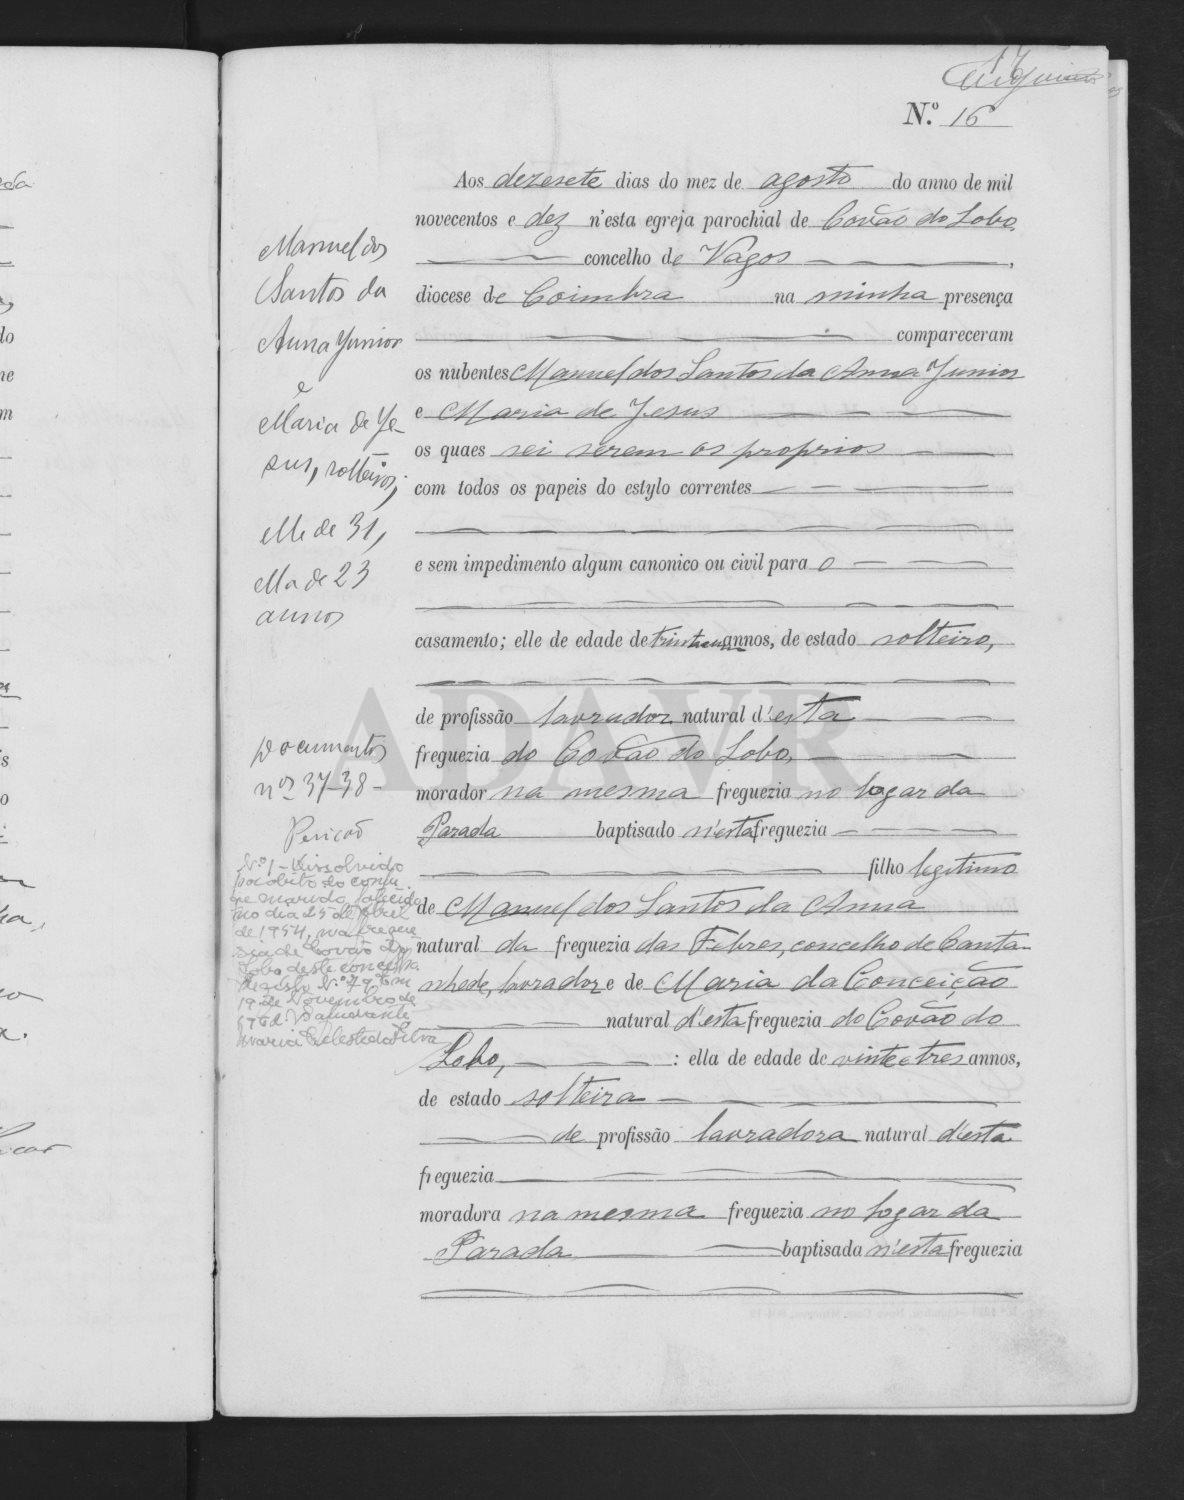 17
N.º 16
Aos dezesete dias do mez de agosto do anno de mil
novecentos e dez n'esta egreja parochial de Covão do Lobo,
concelho de Vagos,
diocese de Coimbra na minha presença
compareceram
os nubentes Manuel dos Santos da Anna Junior
e Maria de Jesus
os quaes sei serem os proprios
com todos os papeis do estylo correntes
e sem impedimento algum canonico ou civil para o
casamento; elle de edade de trinta e um annos, de estado solteiro,
de profissão lavrador natural d'esta
freguezia do Covão do Lobo,
morador na mesma freguezia no logar da
Parada baptisado n'esta freguezia
filho legitimo
de Manuel dos Santos da Anna
natural da freguezia das Febres, concelho de Canta-
nhede, lavrador e de Maria da Conceição
natural d'esta freguezia do Covão do
Lobo, : ella de edade de vinte e tres annos,
de estado solteira
de profissão lavradora natural d'esta
freguezia
moradora na mesma freguezia no logar da
Parada baptisada n'esta freguezia
Manuel dos
Santos da
Anna Junior
e
Maria de Je-
sus, solteiros,
elle de 31,
ella de 23
annos
Documentos
nos 37-38-
N.º 1 - Dissolvido
por obito do conju-
ge marido, falecido
no dia 25 de Abril
de 1954, na fregue-
sia de Covão do
Lobo deste concelho.
Registo N.º Em
19 de Novembro de
Maria Celeste da Silva
ADAVR